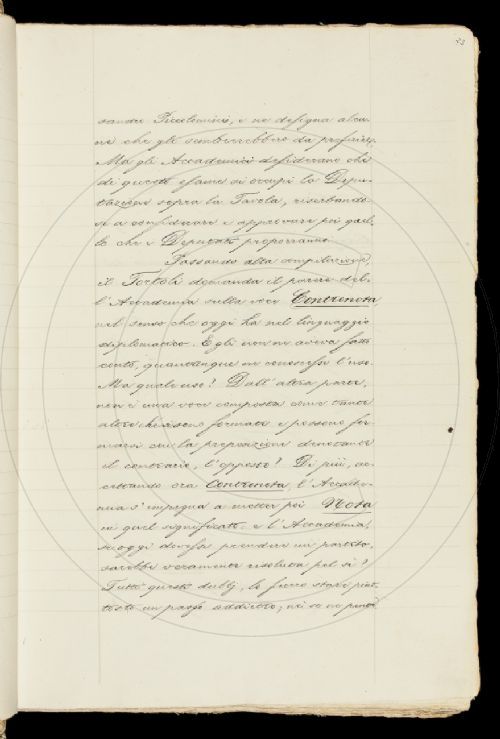 33
sandro Piccolomini, e ne disegna alcu-
ne che gli sembrerebbero da preferirsi.
Ma gli Accademici desiderano che
di questo esame si occupi la Depu-
tazione sopra la Tavola, riserbando-
si a considerare e approvare poi quel-
lo che i Deputati proporranno.
Passando alla compilazione,
il Tortoli domanda il parere del-
l'Accademia sulla voce Contronota
nel senso che oggi ha nel linguaggio
diplomatico. Egli non ne aveva fatto
conto, quantunque ne conoscesse l'uso.
Ma quale uso? Dall'altra parte,
non è una voce composta come tante
altre che sono formate e possono for-
marsi con la preposizione denotante
il contrario, l'opposto? Di più, ac-
cettando ora Contronota, l'Accade-
mia s'impegna a metter poi Nota
in quel significato: e l'Accademia,
se oggi dovesse prendere un partito,
sarebbe veramente risoluta pel sì?
Tutti questi dubbj, lo fecero stare piut-
tosto un passo addietro; nè se ne pente